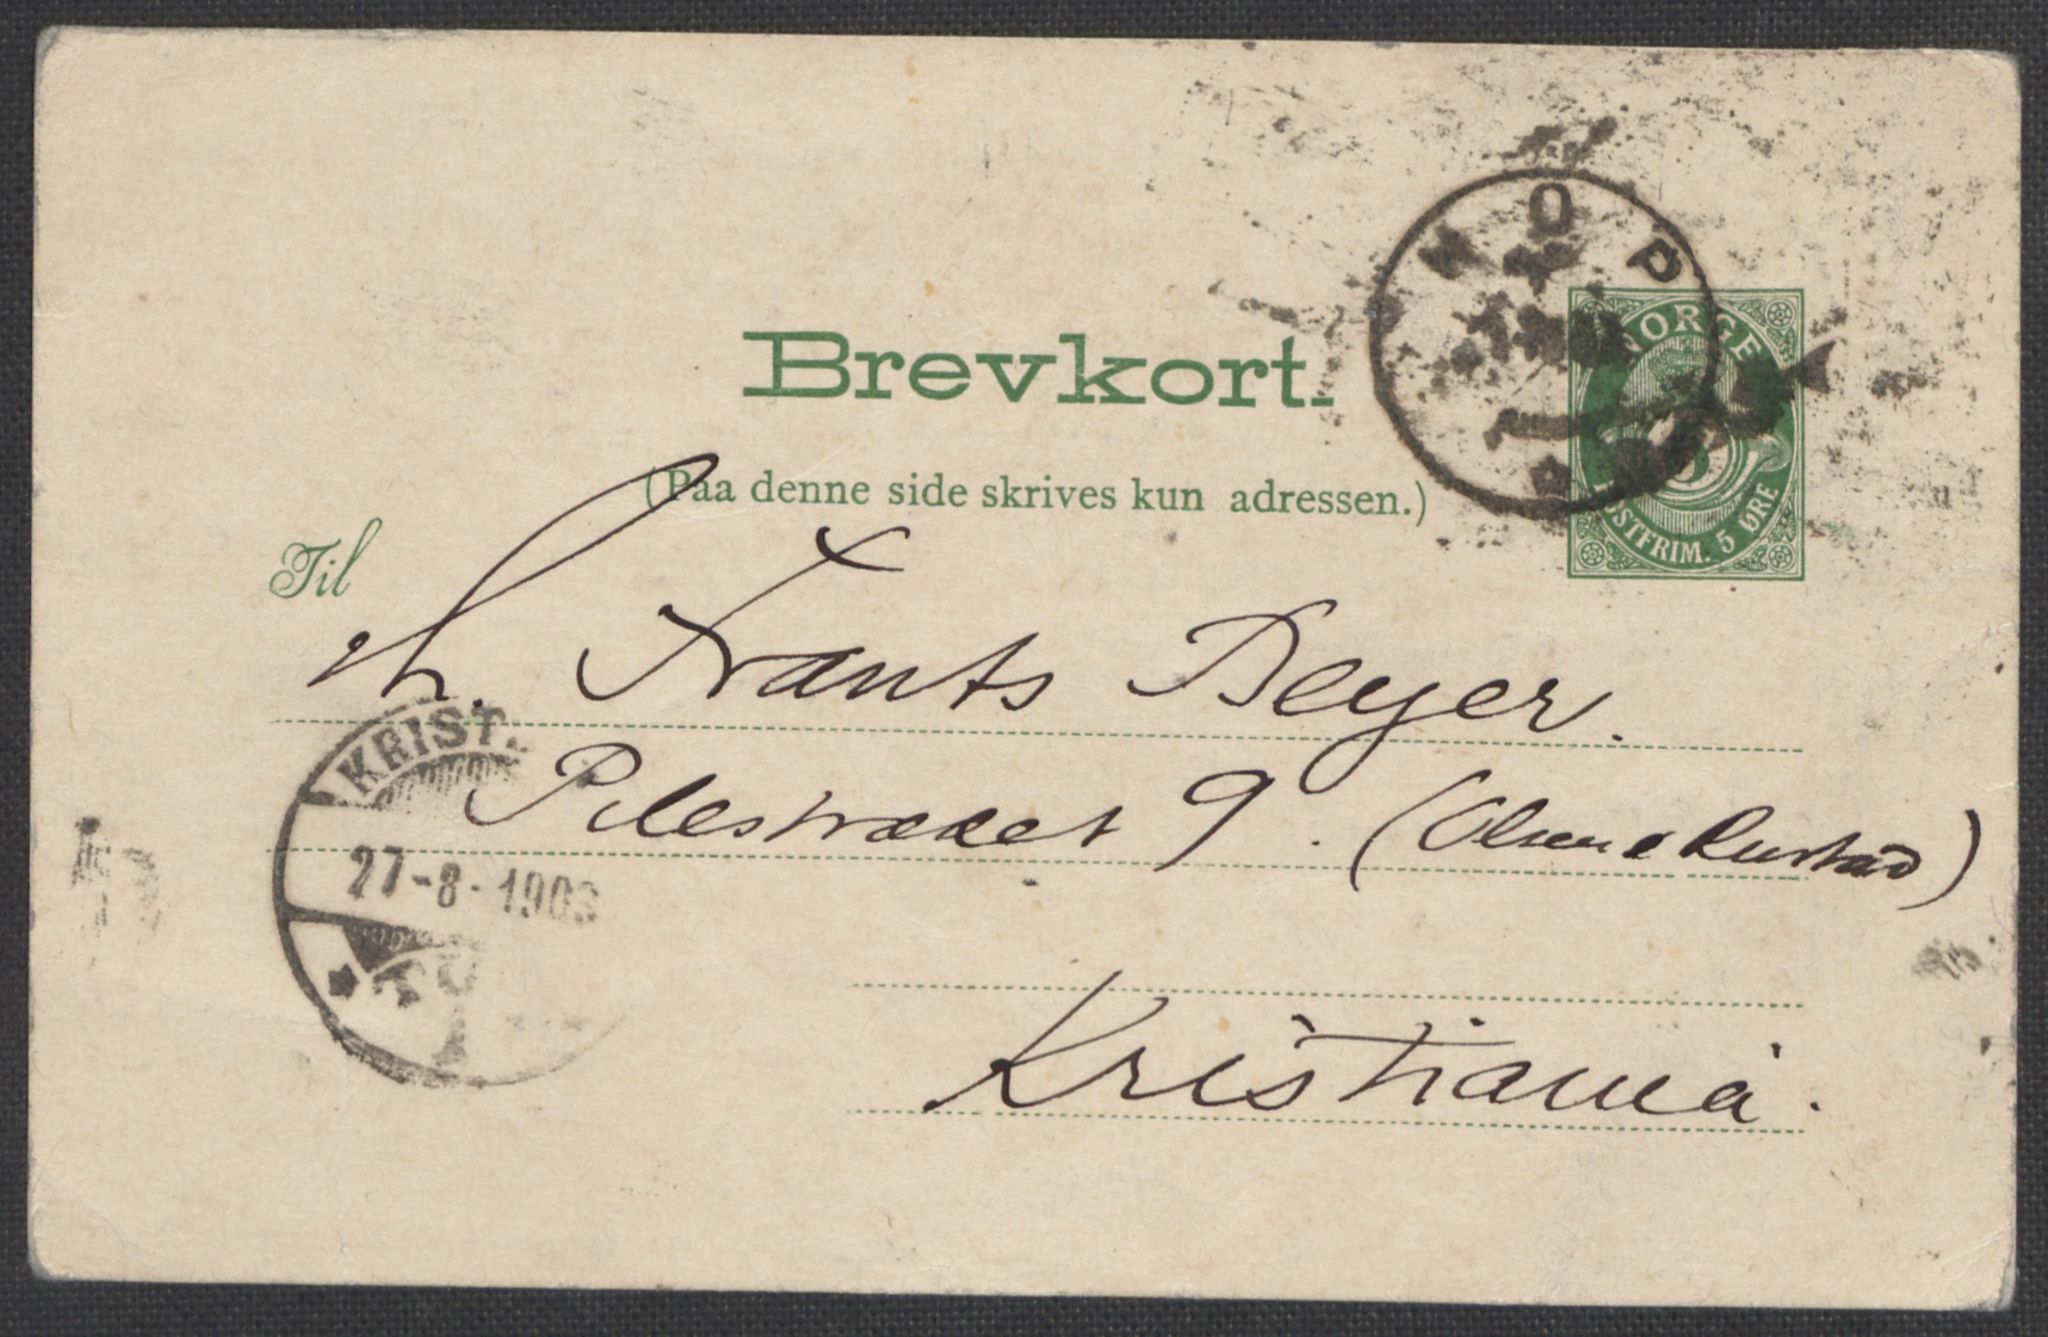 HOP
NORGE
5
POSTFRIM. 5 ØRE
Brevkort.
(Paa denne side skrives kun adressen.)
Til
Hr. Frants Beyer.
Pilestrædet 9. (Olsen & Rustad)
Kristiania.
KRIST
27-8-1903